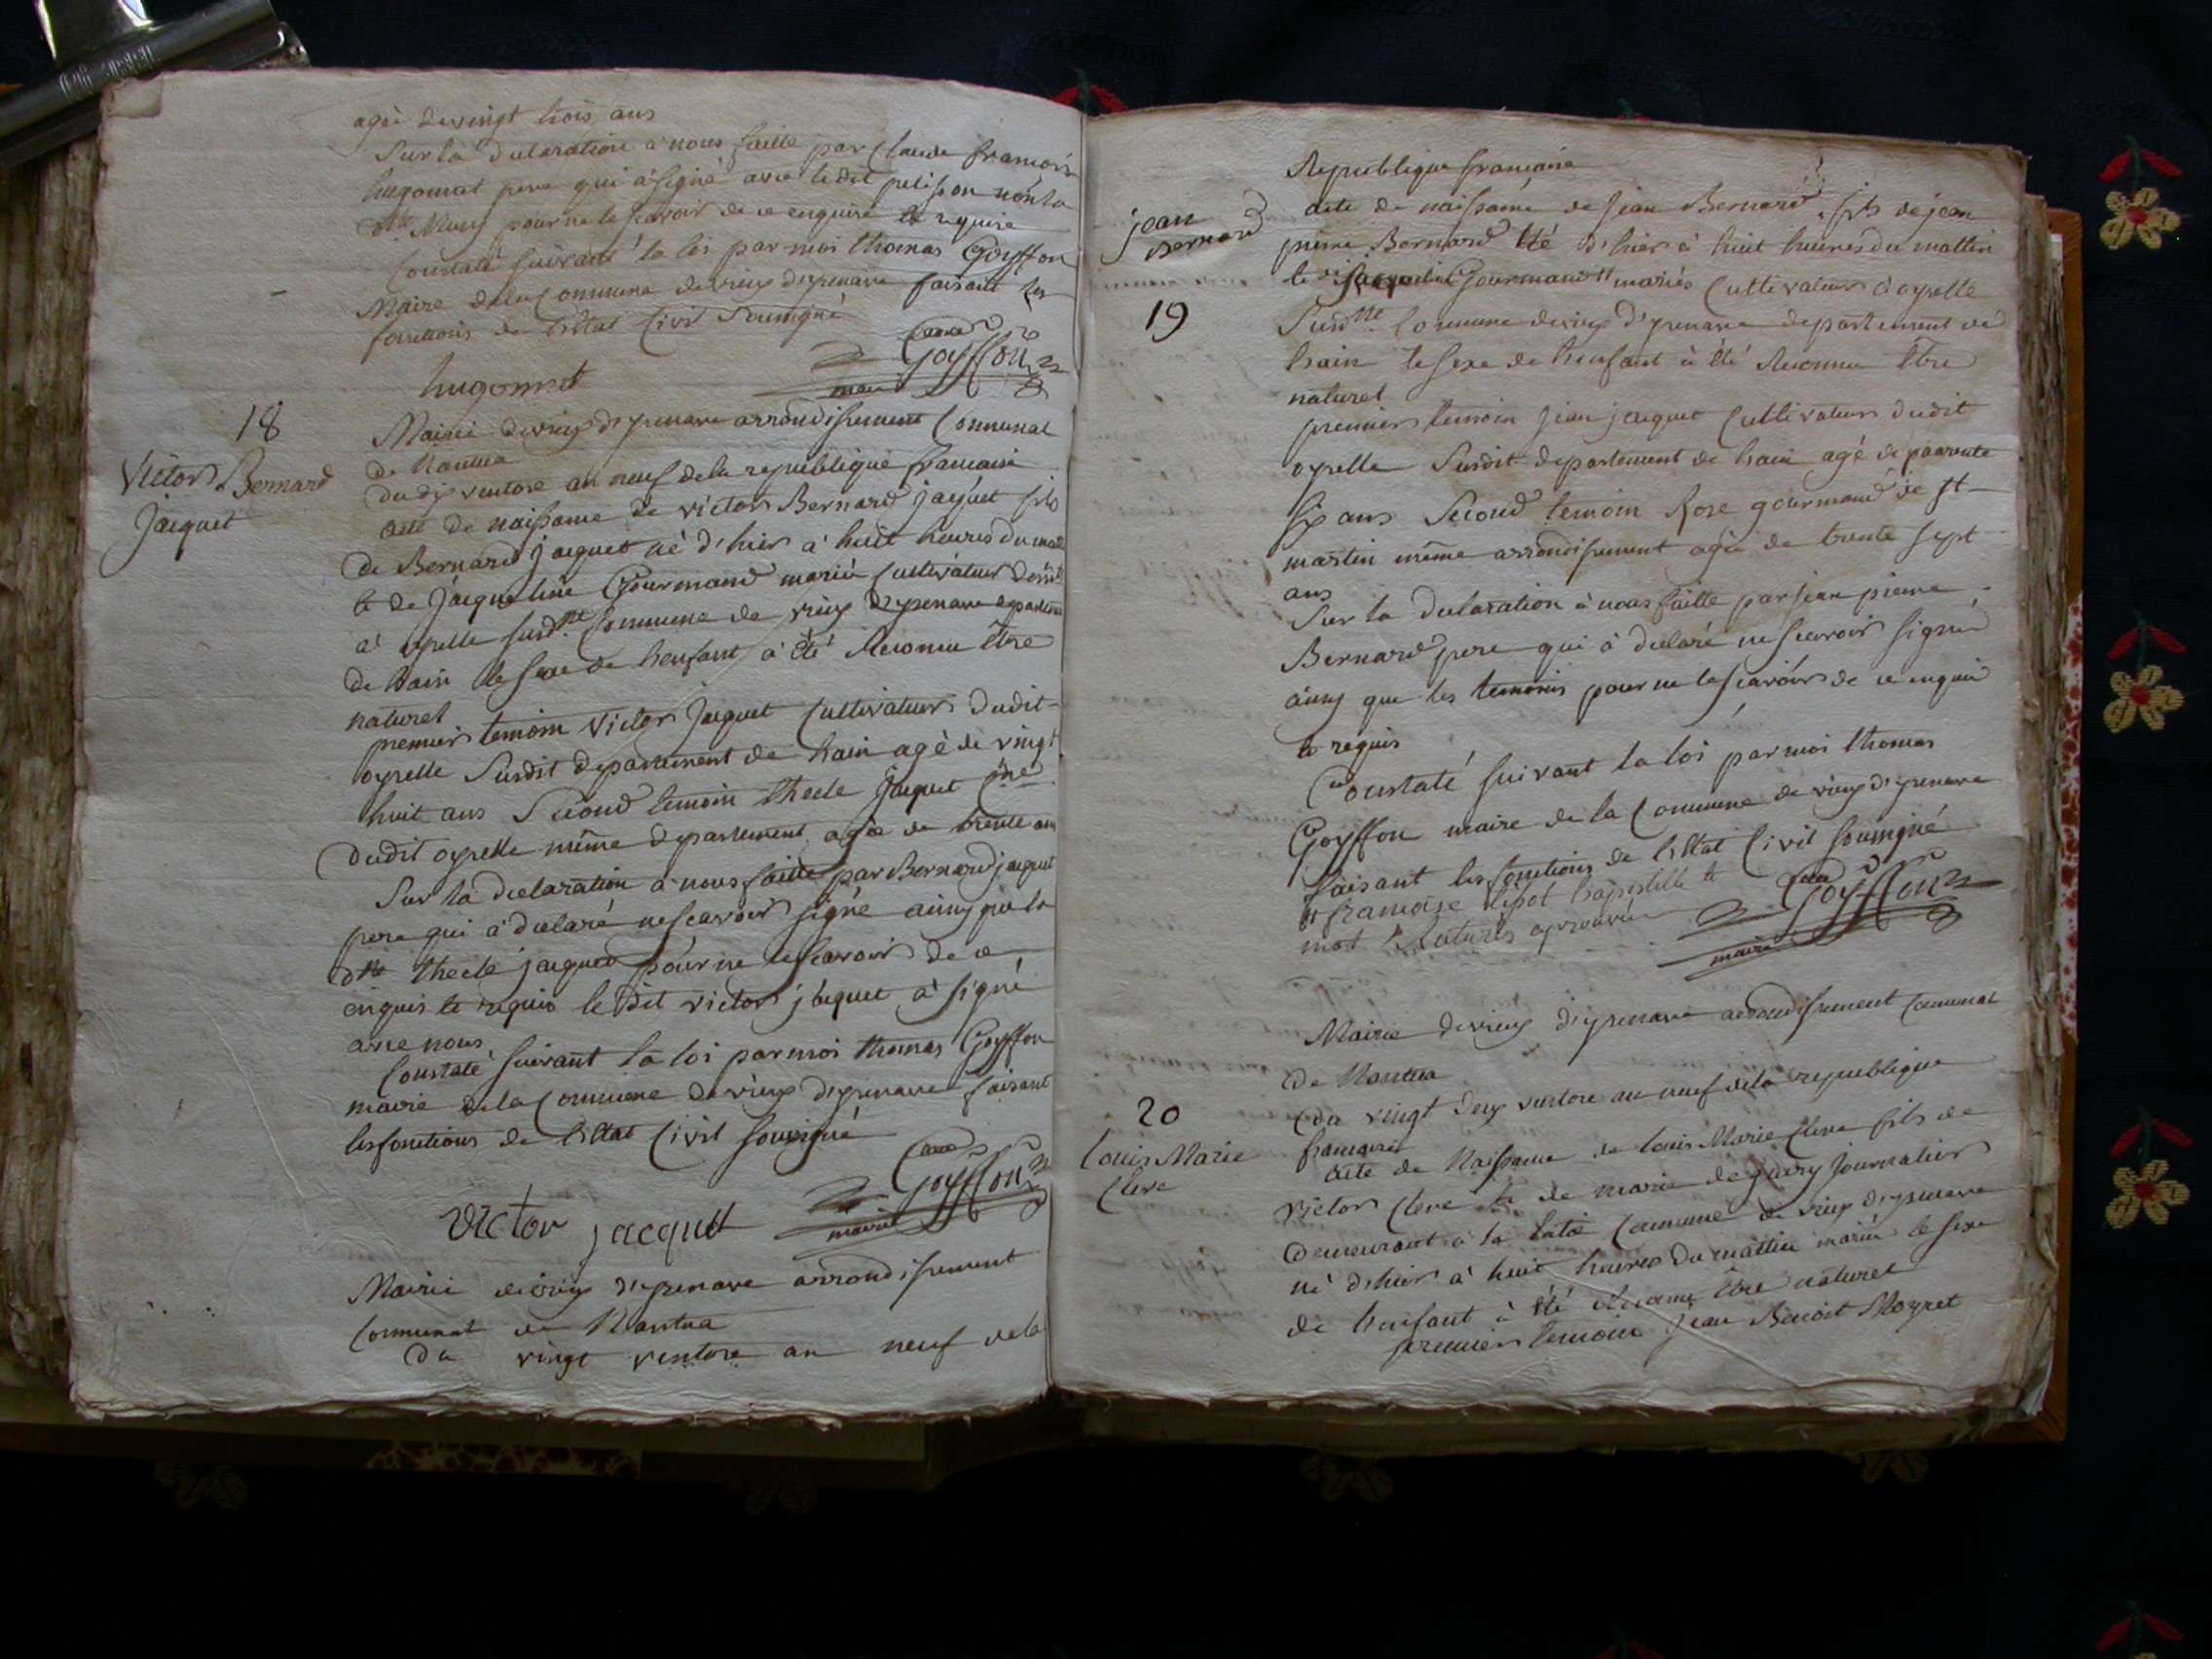 agée de vingt trois ans
Sur la declaration a nous faitte par Claude francois
hugonnet pere qui a signé avec ledit pelisson non la
dte Muey pour ne le scavoir de ce enquise et requise
Constaté suivant la loi par moi thomas Goyffon
Maire de la Commune de vieux d'yzenave faisant les
fonctions de l'Etat Civil soussigné
hugonnet
Goyffon
maire
18
Victor Bernard
Jacquet
Mairie de vieux d'yzenave arrondissement Communal
de Nantua
du dix ventose an neuf de la republique francaise
acte de naissance de victor Bernard jacquet fils
de Bernard jacquet né d'hier a huit heures du matin
et de Jacqueline Gourmand mariés Cultivateur
a oyselle susdtte Commune de vieux d'yzenave departement
de hain le sexe de henfant a été Reconnu Etre
naturel
premier temoin Victor Jacquet Cultivateur dudit
oyselle susdit departement de hain agé de vingt
huit ans Second temoin thecle Jacquet
dudit oyselle même departement agée de trente ans
Sur la declaration a nous faitte par Bernard jacquet
pere qui a declaré ne scavoir signé ainsy que la
dtte thecle jacquet pour ne le scavoir de ce
enquis et requis le dit victor jacquet a signé
avec nous
Constaté suivant la loi par moi thomas Goyffon
maire de la Commune de vieux d'yzenave faisant
les fonctions de l'Etat Civil soussigné
Goyffon
maire
victor jacquet
Mairie de vieux d'yzenave arrondissement
Communal de Nantua
du vingt ventose an neuf de la
Republique francaise
jean
Bernard
19
acte de naissance de jean Bernard fils de jean
pierre Bernard né d'hier à huit heures du mattin
et de Gourmand mariés Cultivateurs d'oyselle
Susdtte Commune de vieux d'yzenave departement de
hain le sexe de henfant à été Reconnu Etre
naturel
premier temoin jean jacquet Cultivateur dudit
oyselle Susdit departement de hain agé de quarente
six ans Second temoin Rose gourmand de st
martin même arrondissement agée de trente sept
ans
Sur la declaration à nous faitte par jean pierre
Bernard pere qui à declaré ne scavoir signé
ainsy que les temoins pour ne le scavoir de ce enquis
et requis
Constaté suivant la loi par moi thomas
Goyffon maire de la Commune de vieux d'yzenave
faisant les fonctions de l'Etat Civil soussigné
francoise et
mot Raturés aprouvé
Goyffon
maire
Mairie de vieux d'yzenave arrondissement Communal
de Nantua
20
Louis Marie
Cleve
du vingt deux ventose an neuf de la republique
francaise
acte de Naissance de louis Marie Cleve fils de
victor Cleve et de marie journalier
demeurant à la Commune de vieux d'yzenave
né d'hier à huit heures du mattin mariés le sexe
de henfant à été Reconnu Etre naturel
premier temoin Jean Benoit Moyret